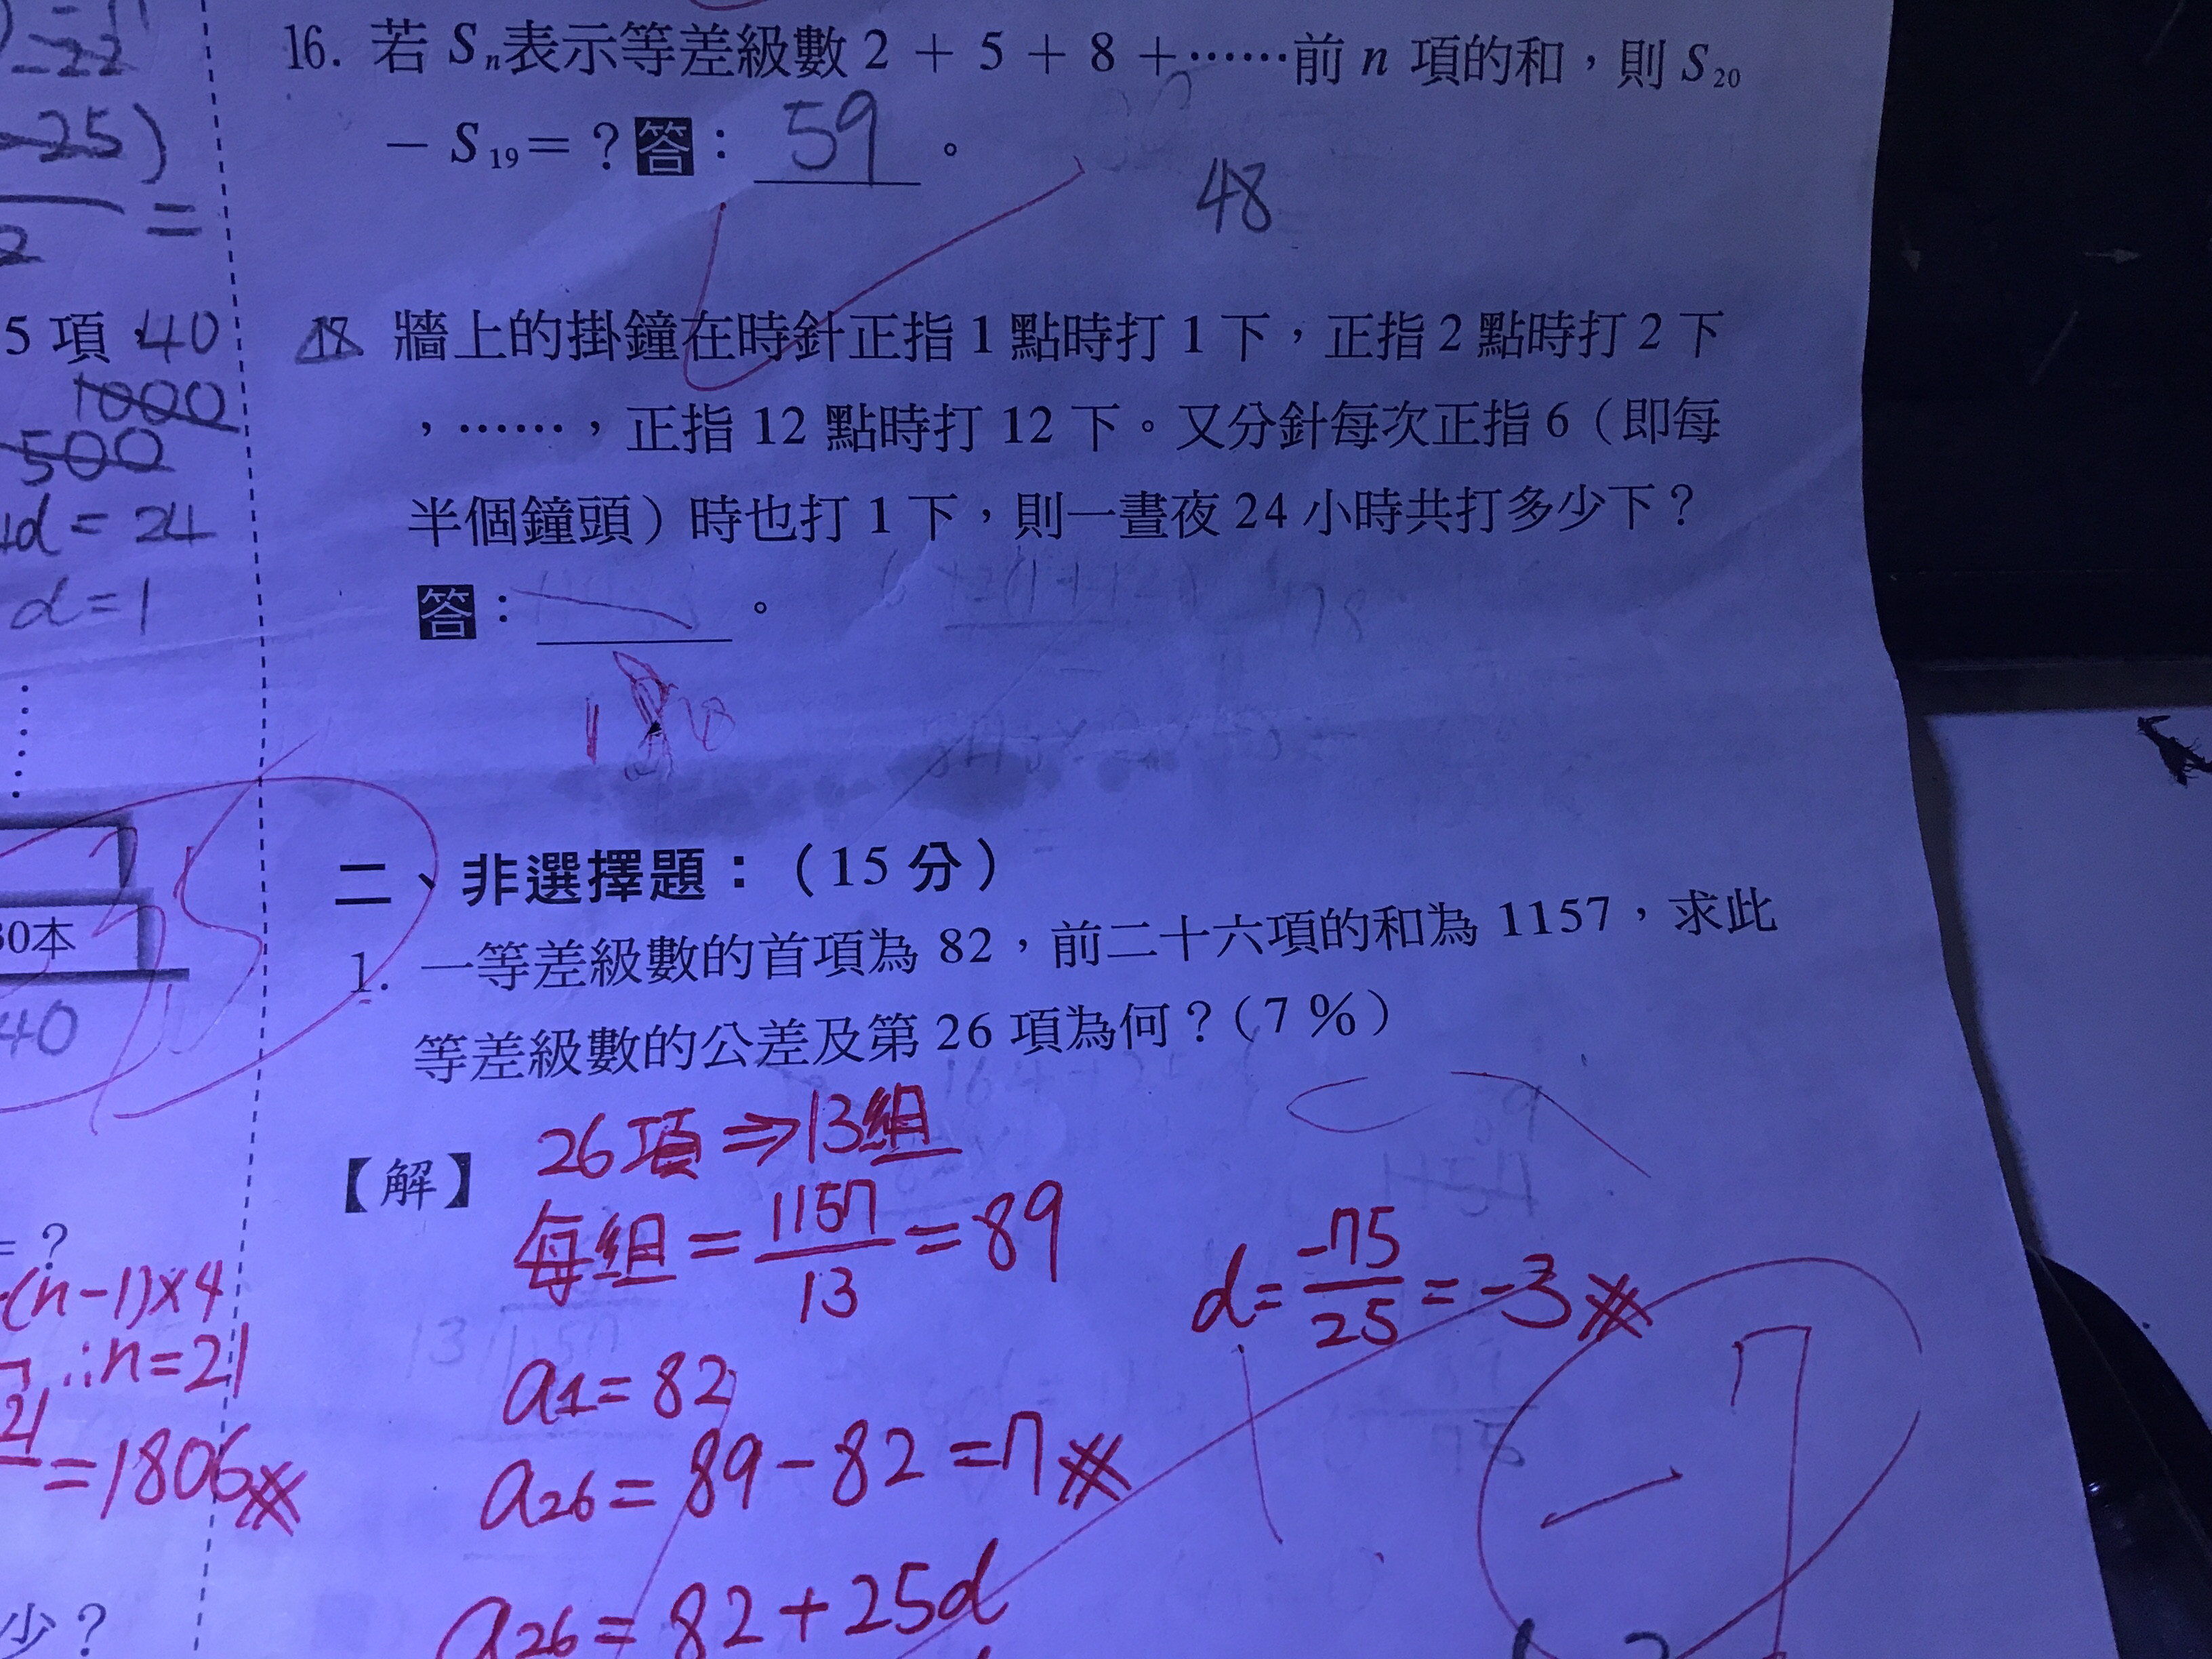 =22
25)
2
=
5 項 40
1000
500
4d = 24
d = 1
30本
40
= ?
(n-1)×4
∴n=21
21
=1806
少？
16. 若 Sn表示等差級數 2 + 5 + 8 +……前 n 項的和，則 S20
- S19 = ? 答： 59 。
48
18 牆上的掛鐘在時針正指 1 點時打 1 下，正指 2 點時打 2 下
，……，正指 12 點時打 12 下。又分針每次正指 6（即每
半個鐘頭）時也打 1 下，則一晝夜 24 小時共打多少下？
答： 。
二、非選擇題：（15 分）
1. 一等差級數的首項為 82，前二十六項的和為 1157，求此
等差級數的公差及第 26 項為何？（7 %）
【解】 26項⇒13組
每組 = 1157/13 = 89
d = -75/25 = -3
a1 = 82
a26 = 89 - 82 = 7
a26 = 82 + 25d
-7